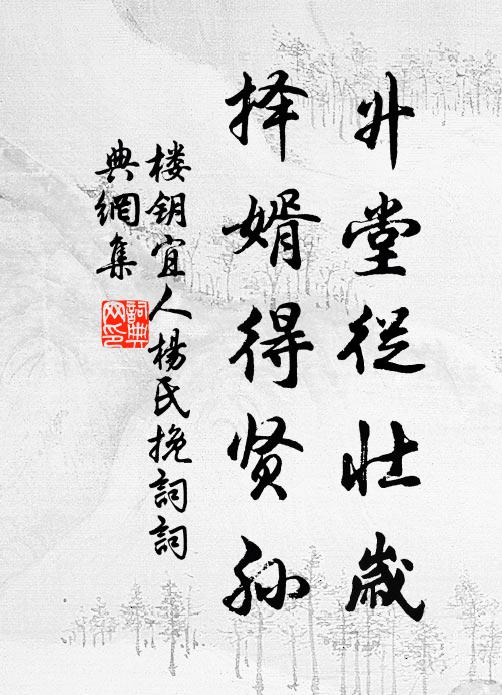 升堂從壮歲
择婿得贤孙
楼钥宜人楊氏挽詞詞
典網集
詞典网印